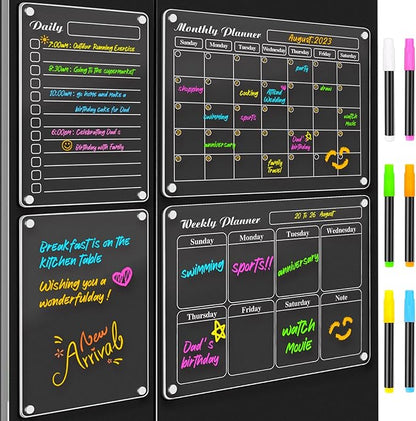 Daily
7:00am: Outdoor Running Exercise
8:30am: Going to the supermarket
10:00am: go home and make a
birthday cake for Dad
6:00pm: Celebrating Dad's
Birthday with Family
Monthly Planner
August.2023
Sunday Monday Tuesday Wednesday Thursday Friday Saturday
party
shopping cooking Attend Wedding draw
swimming sports watch Movie
anniversary Dad's birthday
family travel
Breakfast is on the
kitchen table
Wishing you a
wonderfulday!
New
Arrival
Weekly Planner
20 To 26 August
Sunday Monday Tuesday Wednesday
swimming sports!! anniversary
Thursday Friday Saturday Note
Dad's
birthday
watch
Movie